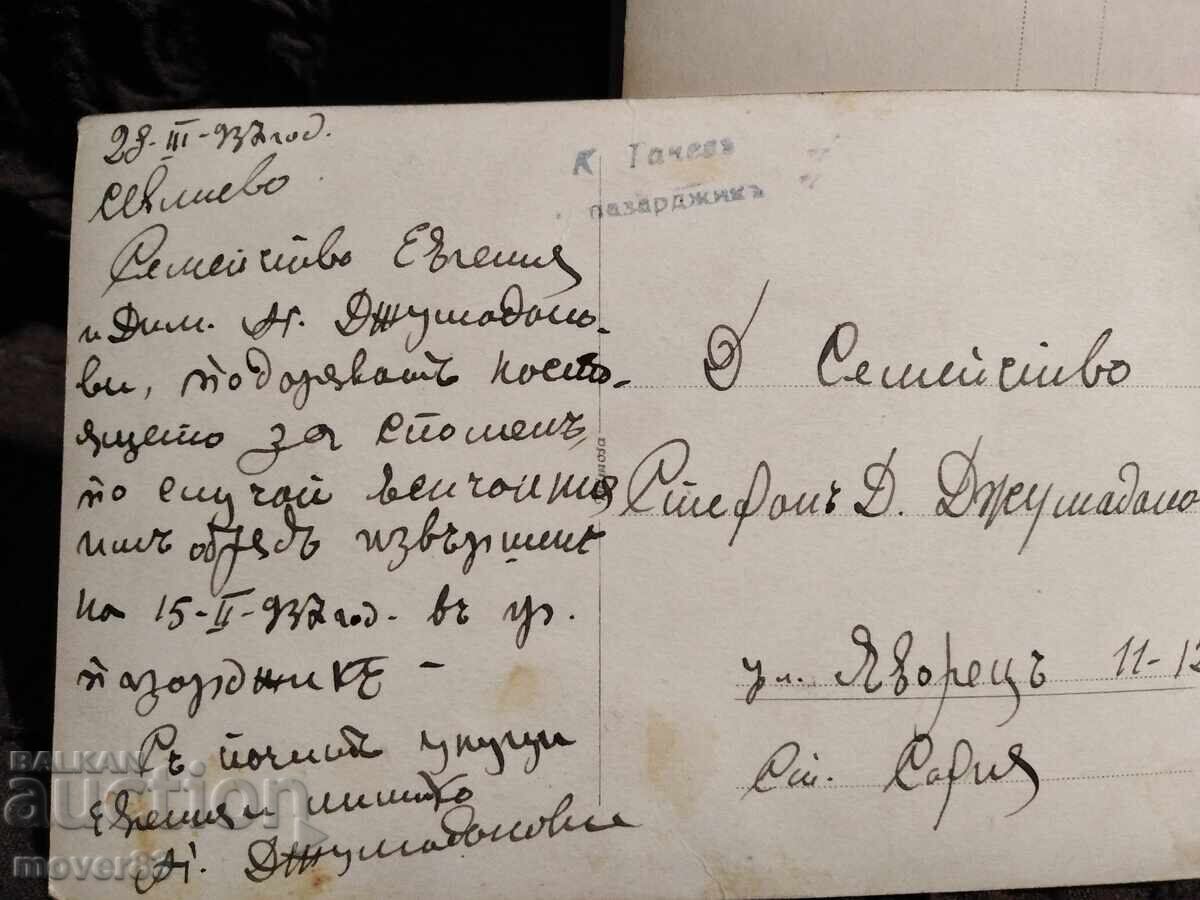 28-III-937 год.
Севлиево
Семейство Евгения
и Дим. Н. Джумадано-
ви, подоряватъ насто-
ящето за споменъ,
по случай венчалния
имъ обредъ извършенъ
на 15-II-937 год. въ гр.
Пазарджикъ -
Съ почитъ
Евгения и Митко
Н. Джумаданови
К Тачевъ
Пазарджикъ
Д Семейство
Стефанъ Д. Джумадано
ул. Яворецъ 11-12
Ст. София
BALKAN
auction
mover83